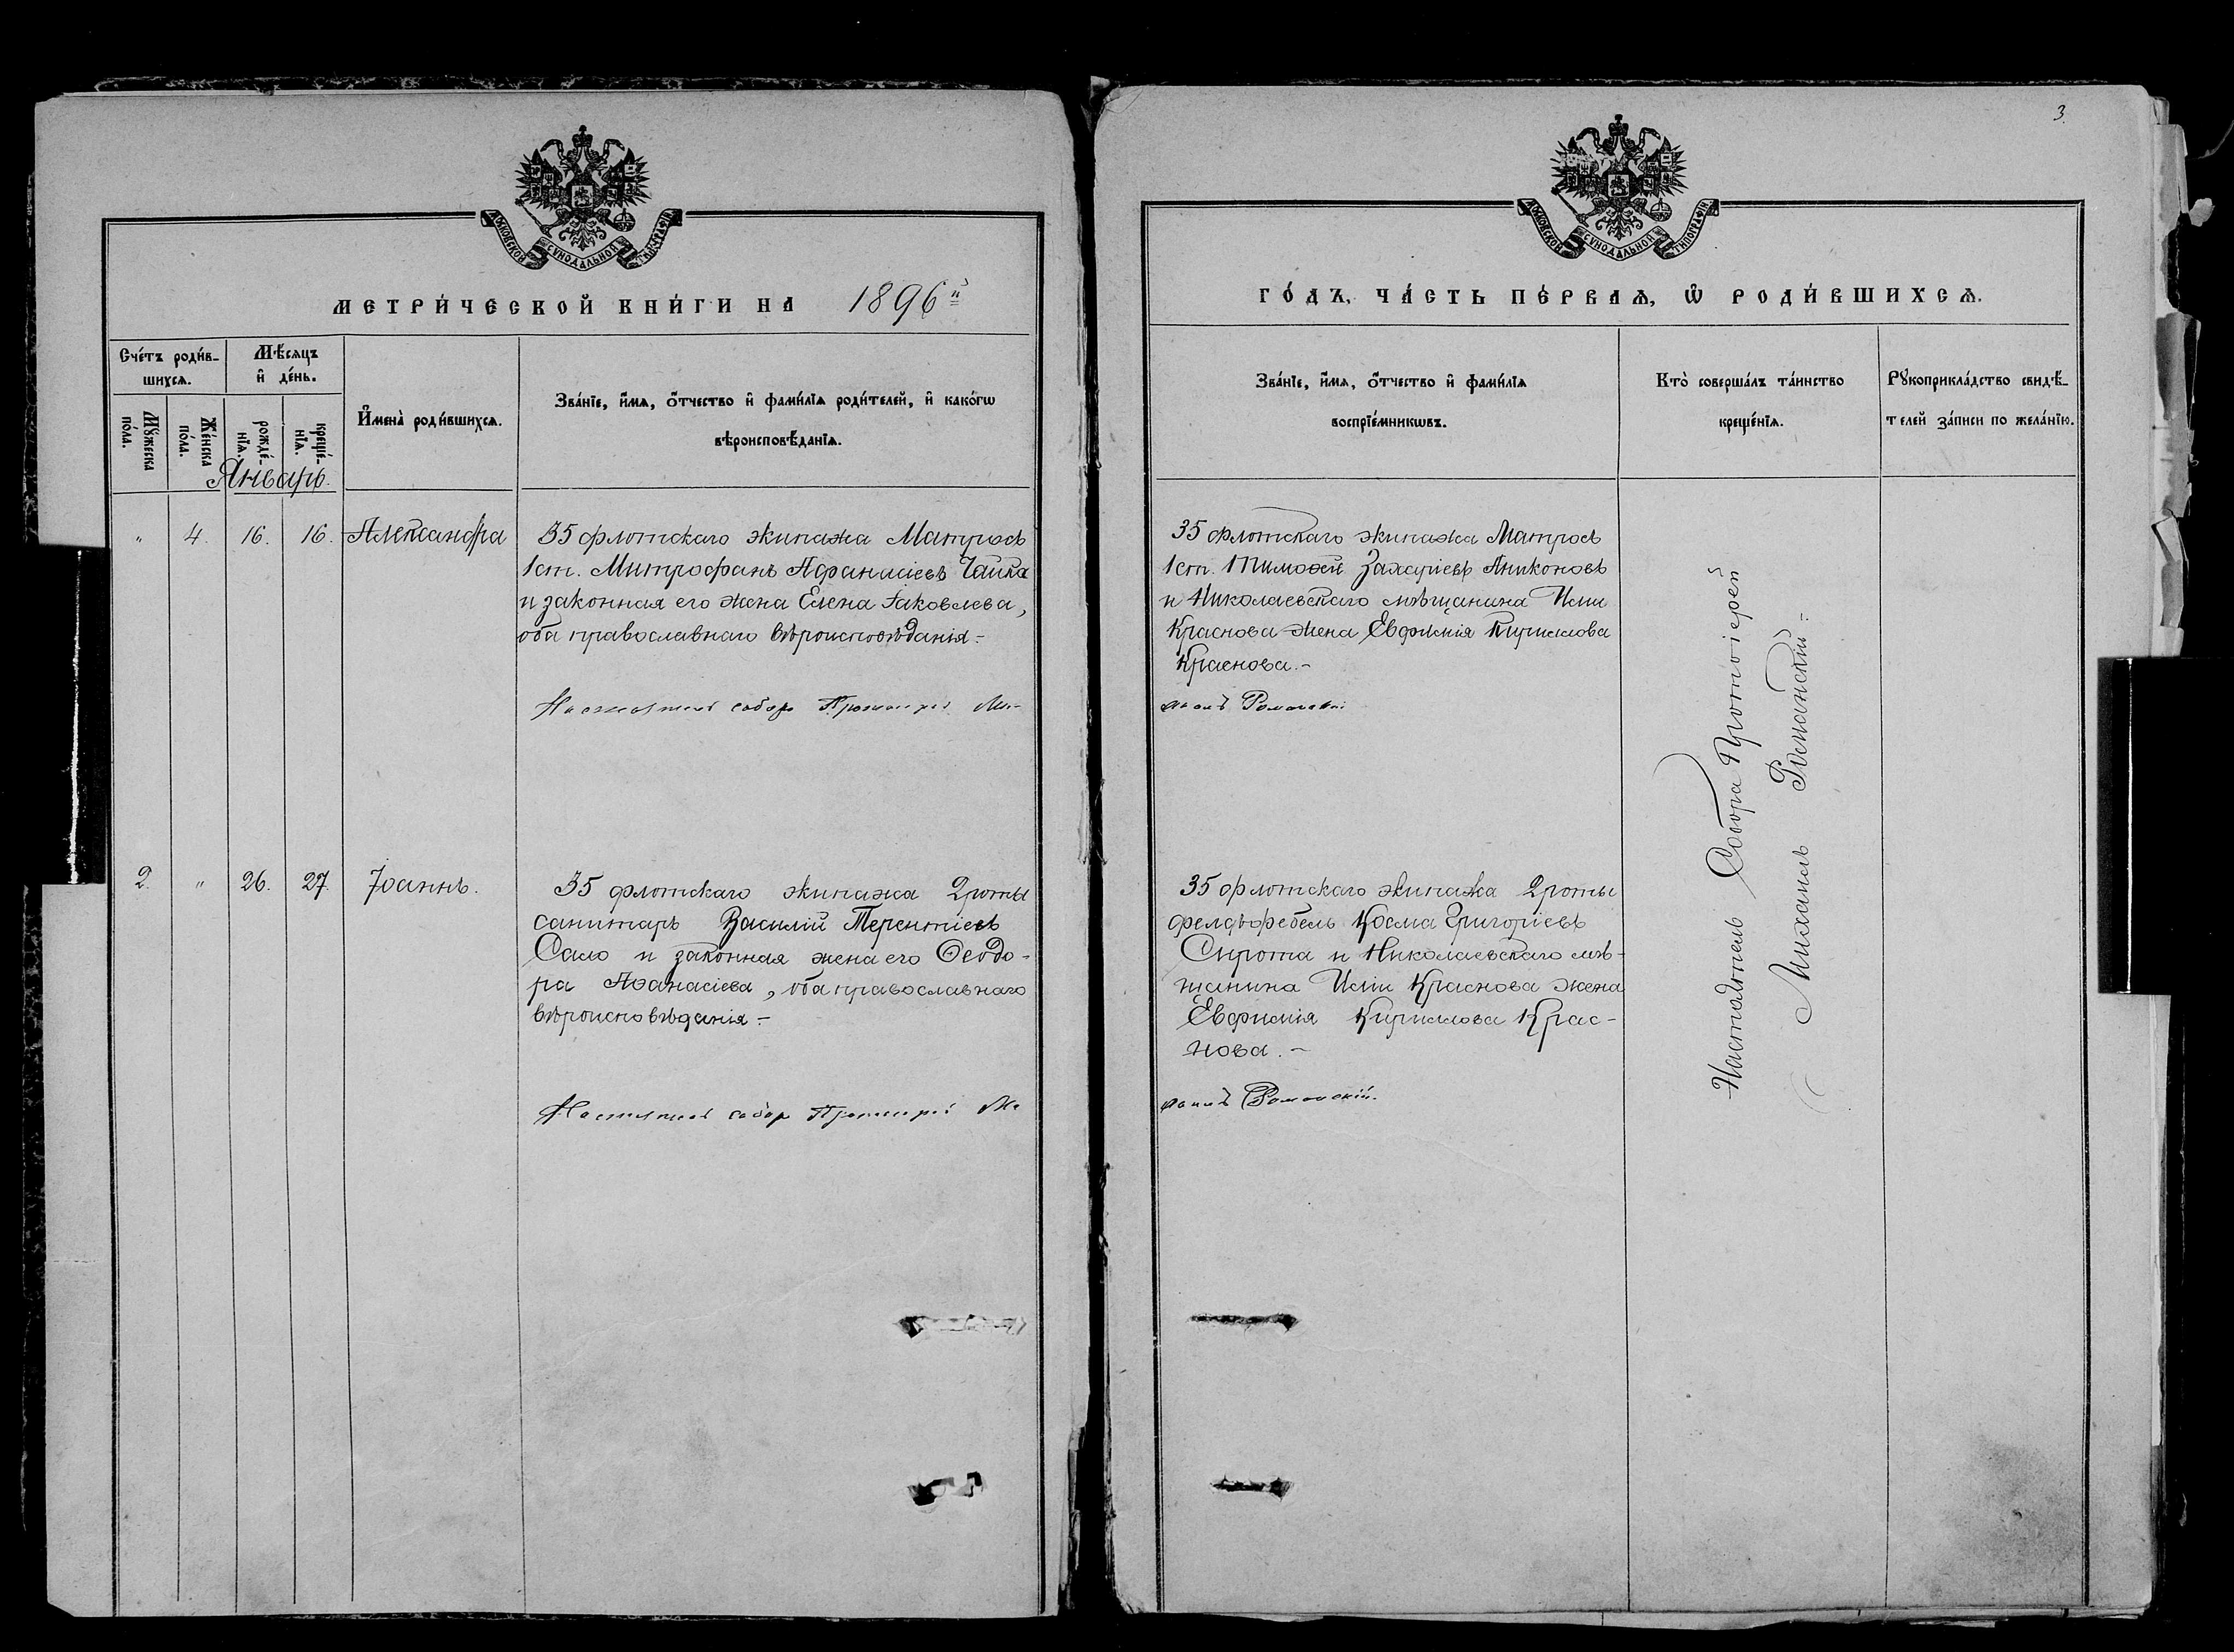 3.
МОСКОВСКОЙ СѴНОДАЛЬНОЙ ТИПОГРАФІИ
МОСКОВСКОЙ СѴНОДАЛЬНОЙ ТИПОГРАФІИ
МЕТРИ́ЧЕСКОЙ КНИ́ГИ НА 1896й
ГО́ДЪ, ЧА́СТЬ ПЕ́РВАѦ, Ѡ҆ РОДИ́ВШИХСѦ.
Сче́тъ роди́в-
шихсѧ.
Мꙋ́жеска
по́ла.
Же́нска
по́ла.
Мѣ́сѧцъ
и҆ де́нь.
рожде́-
нїѧ.
креще́-
нїѧ.
Январь.
И҆мена̀ роди́вшихсѧ.
Зва́нїе, и҆́мѧ, ѻ҆́тчество и҆ фами́лїѧ роди́телей, и҆ како́гѡ
вѣроисповѣ́данїѧ.
Зва́нїе, и҆́мѧ, ѻ҆́тчество и҆ фами́лїѧ
воспрїе́мникѡвъ.
Кто̀ соверша́лъ та́инство
креще́нїѧ.
Рꙋкоприкла́дство свидѣ́-
телей за́писи по жела́нїю.
" 4. 16. 16. Александра
35 флотскаго экипажа Матросъ
1 ст. Митрофанъ Афанасіевъ Чайка
и законная его жена Елена Іаковлева,
оба православнаго вѣроисповѣданія.-
35 флотскаго экипажа Матросъ
1 ст. Тимоѳей Захаріевъ Аниконовъ
и Николаевскаго мѣщанина Иліи
Краснова жена Евфимія Кириллова
Краснова.-
Настоятель собора Протоіерей Ми-
хаилъ Романскій
2. " 26. 27. Іоаннъ.
35 флотскаго экипажа 2 роты
санитаръ Василій Терентіевъ
Сало и законная жена его Ѳеодо-
ра Аѳанасіева, оба православнаго
вѣроисповѣданія.-
35 флотскаго экипажа 2 роты
фелдфебель Косма Григоріевъ
Сирота и Николаевскаго мѣ-
щанина Иліи Краснова жена
Евфимія Кириллова Крас-
нова.-
Настоятель собора Протоіерей Ми
хаилъ Романскій.
Настоятель Собора Протоіерей
Михаилъ Романскій.